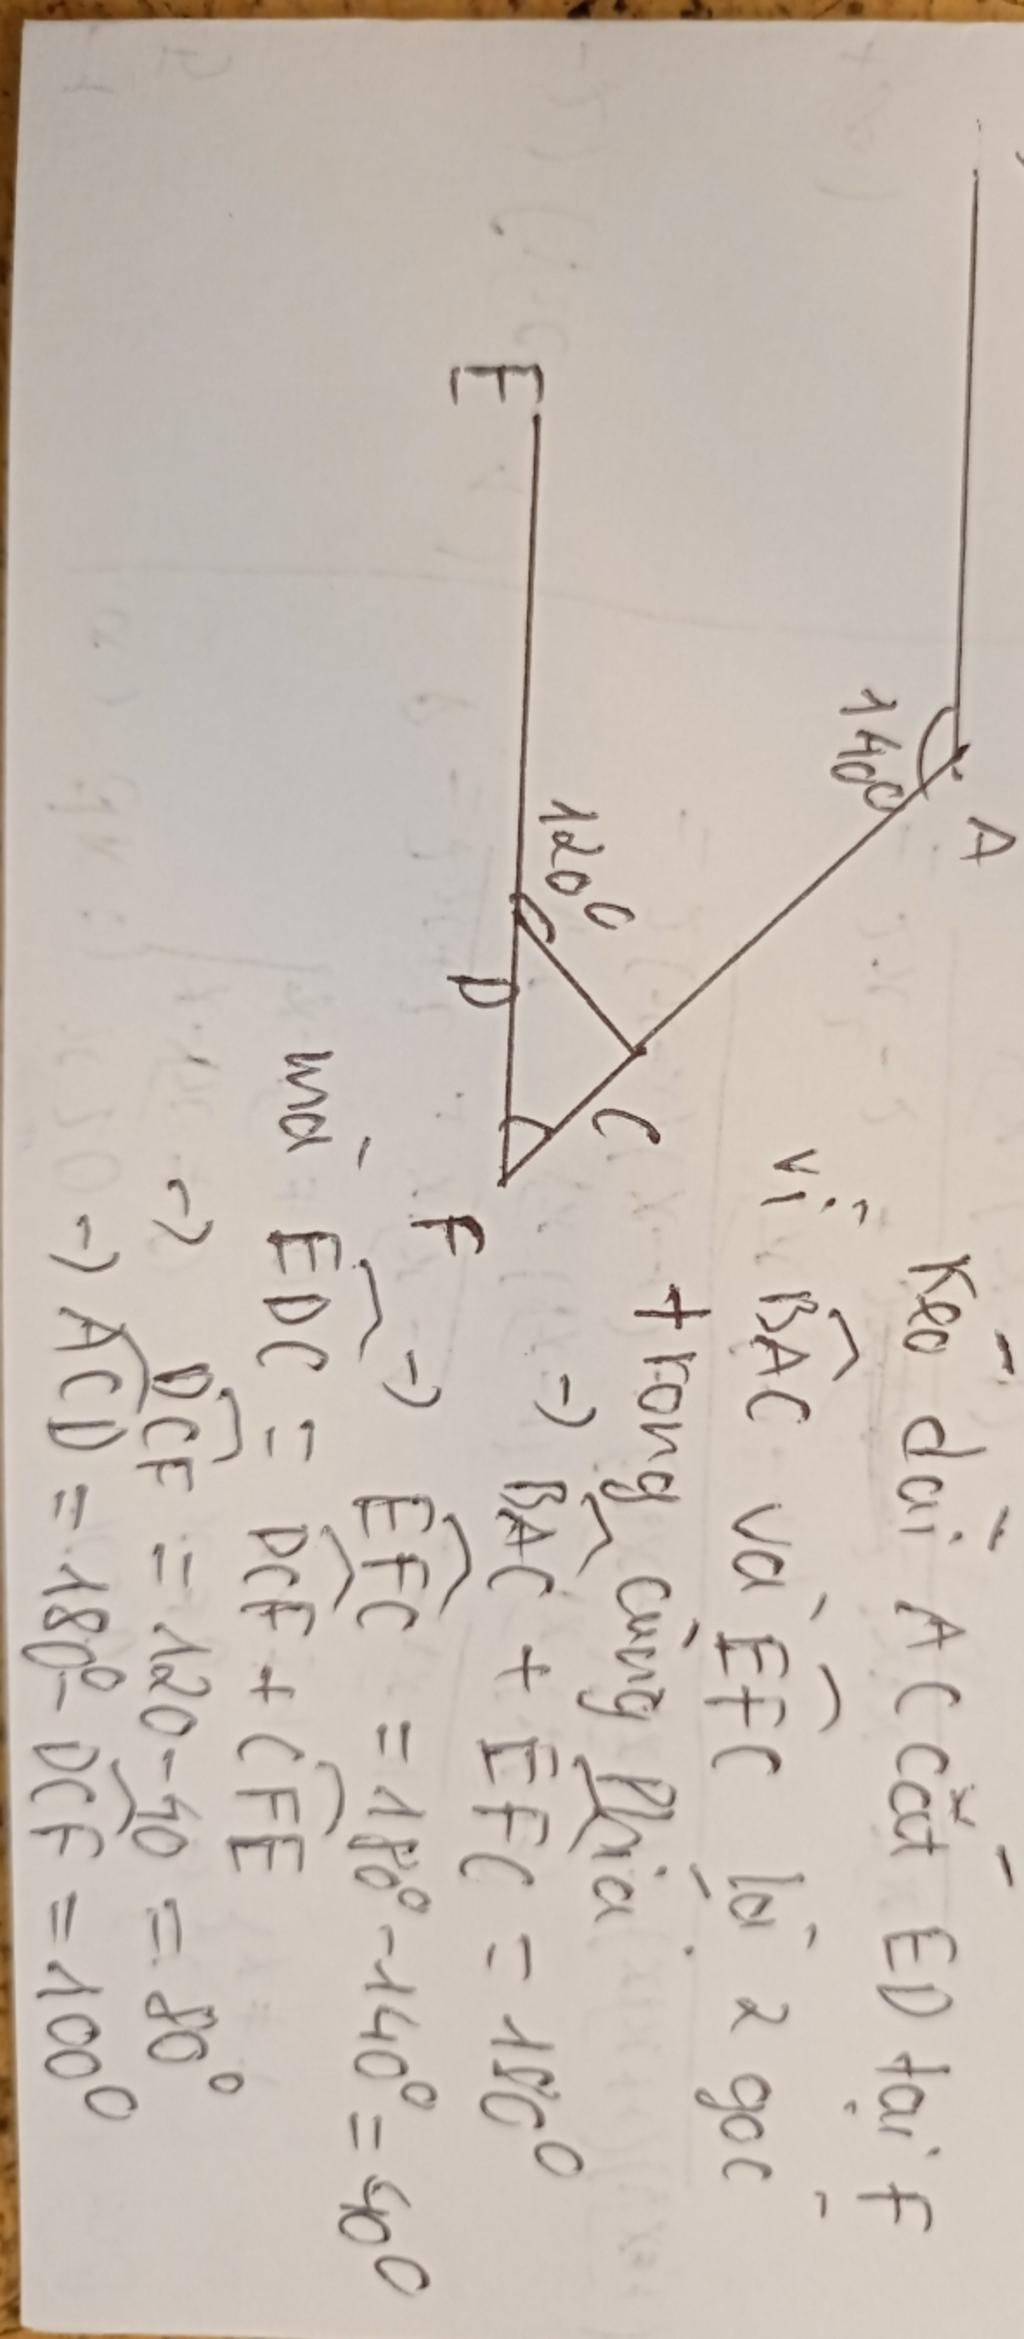 A
140
E
120°
D
C
F
Kéo dài AC cắt ED tại F
vì BAC và EFC là 2 góc
trong cùng phía
-) BAC + EFC = 180°
-) EFC = 180° - 140° = 40°
mà EDC = DCF + CFE
-) DCF = 120 - 40 = 80°
-) ACD = 180° - DCF = 100°